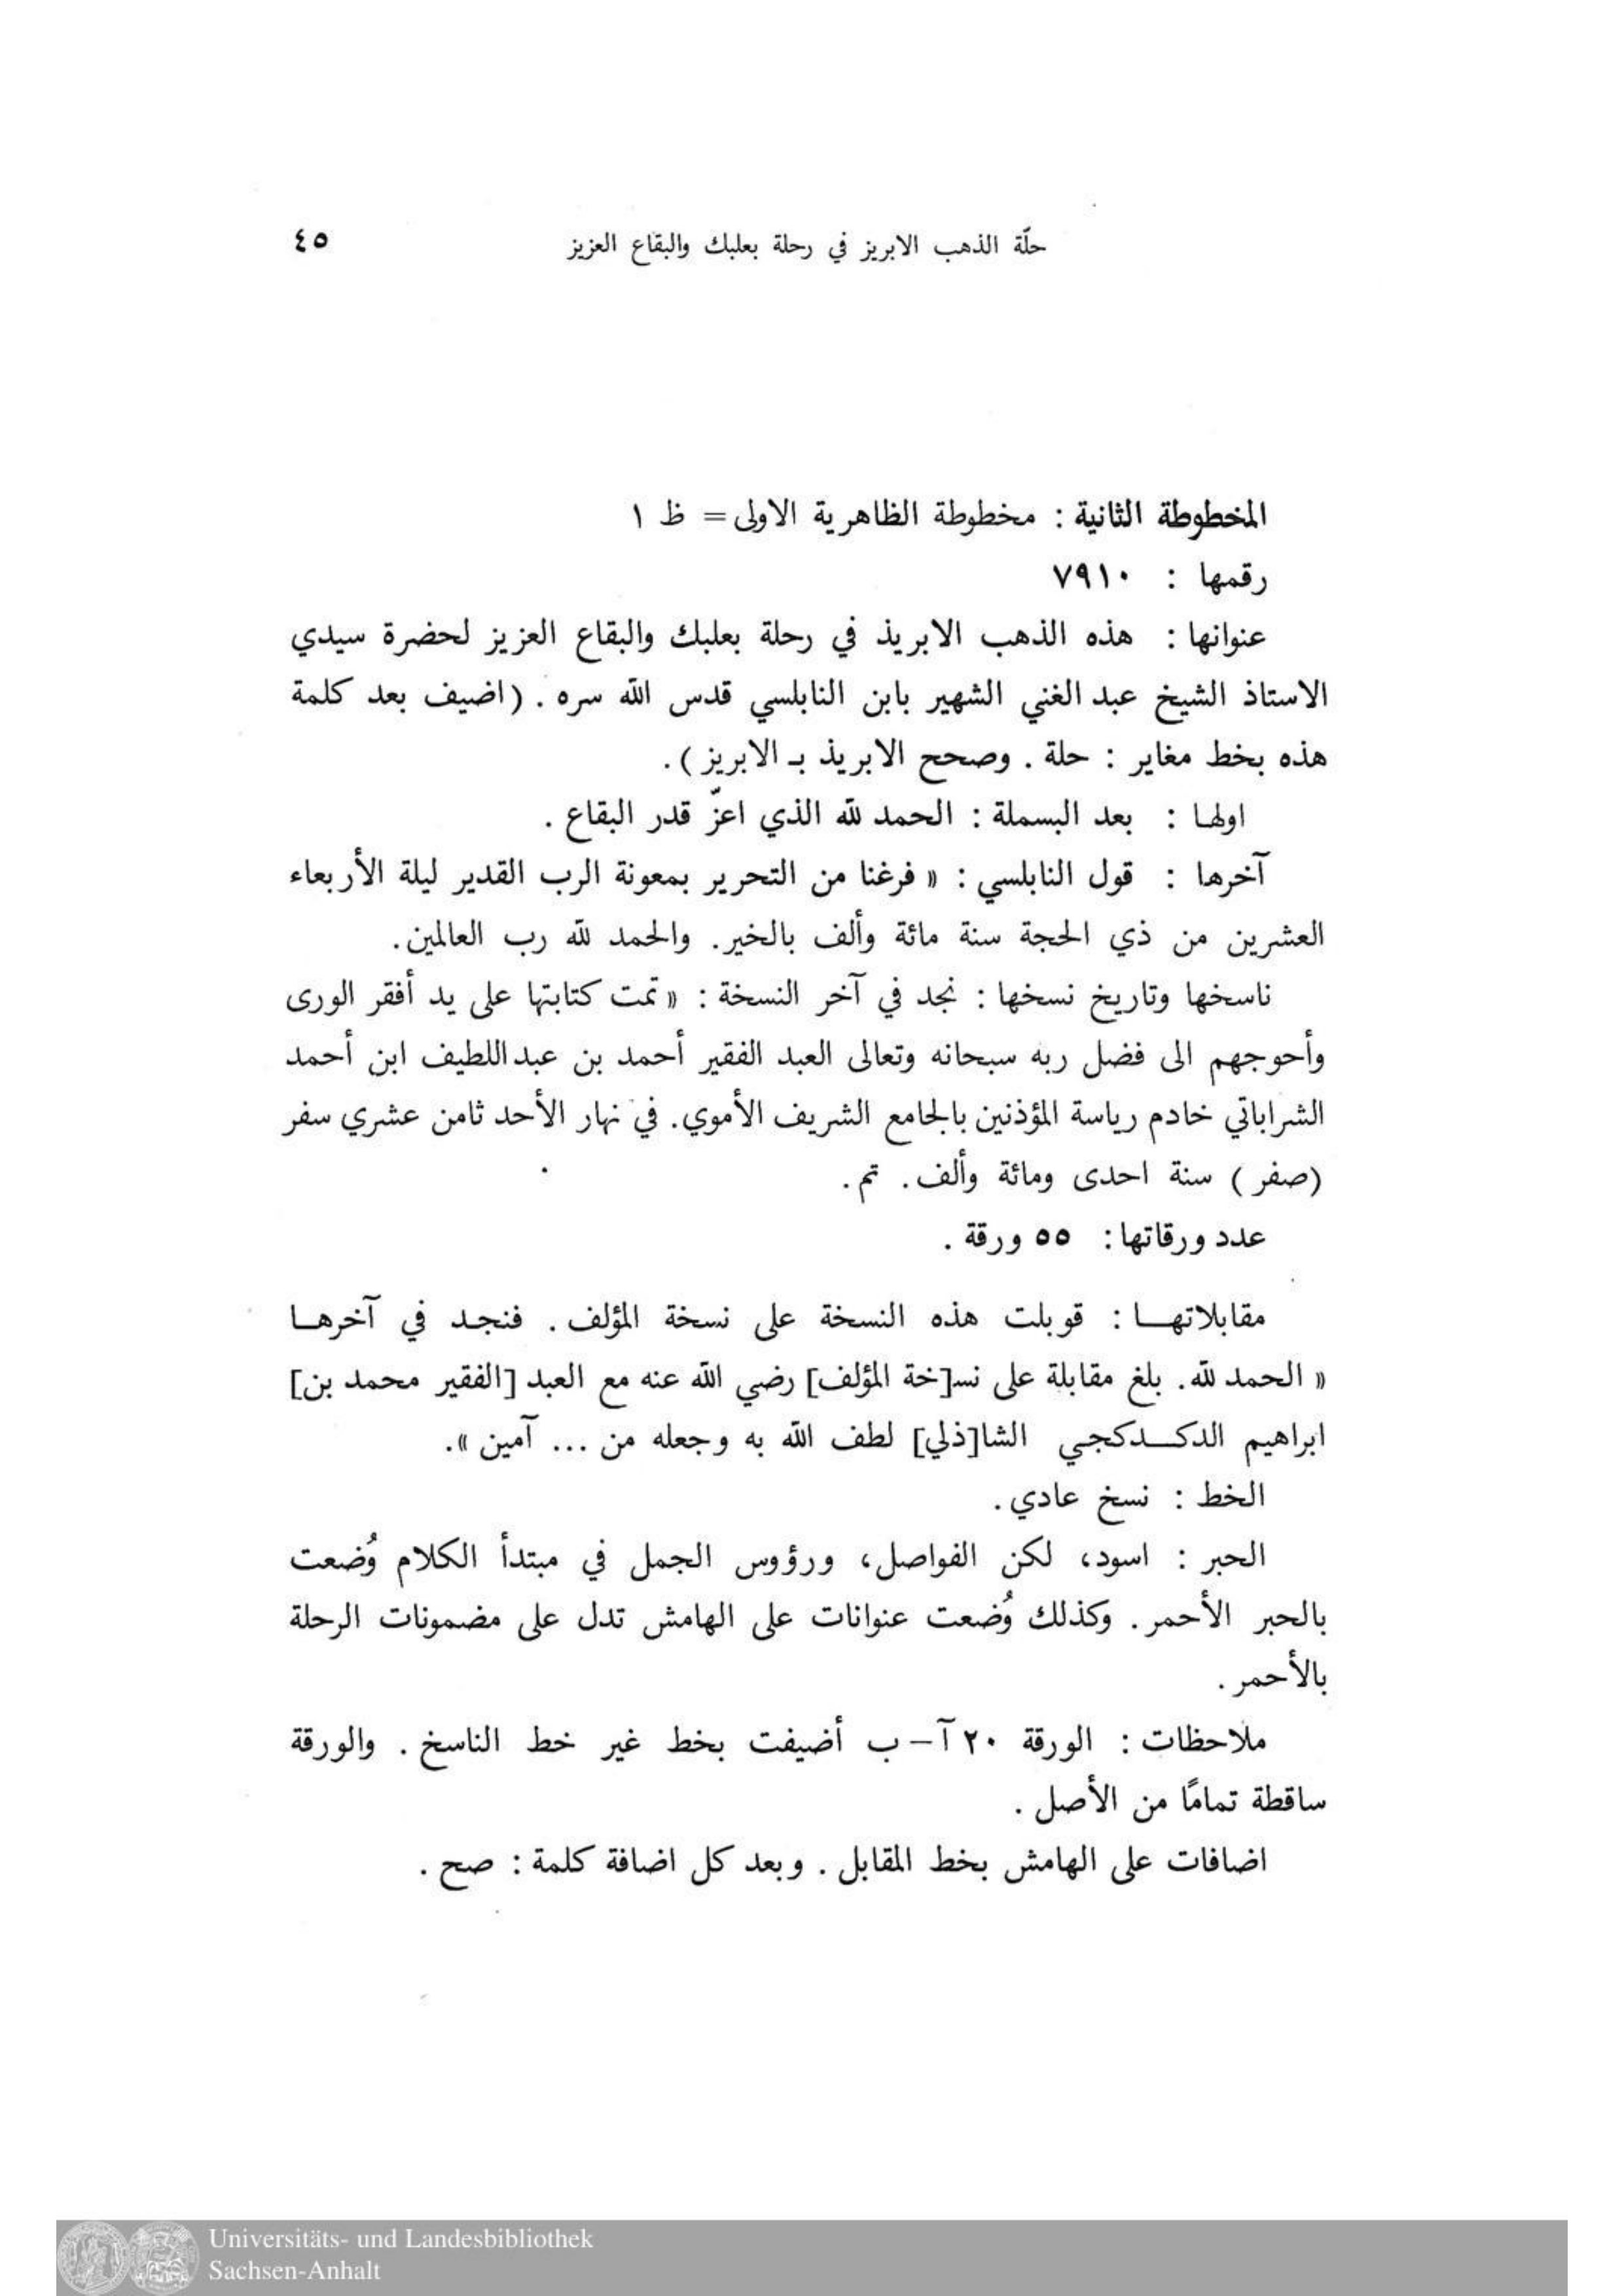 حلّة الذهب الابريز في رحلة بعلبك والبقاع العزيز ٤٥
المخطوطة الثانية : مخطوطة الظاهرية الاولى = ظ ١
رقمها : ٧٩١٠
عنوانها : هذه الذهب الابريذ في رحلة بعلبك والبقاع العزيز لحضرة سيدي
الاستاذ الشيخ عبد الغني الشهير بابن النابلسي قدس الله سره . (اضيف بعد كلمة
هذه بخط مغاير : حلة . وصحح الابريذ بـ الابريز ) .
اولها : بعد البسملة : الحمد لله الذي اعزّ قدر البقاع .
آخرها : قول النابلسي : « فرغنا من التحرير بمعونة الرب القدير ليلة الأربعاء
العشرين من ذي الحجة سنة مائة وألف بالخير. والحمد لله رب العالمين.
ناسخها وتاريخ نسخها : نجد في آخر النسخة : « تمت كتابتها على يد أفقر الورى
وأحوجهم الى فضل ربه سبحانه وتعالى العبد الفقير أحمد بن عبد اللطيف ابن أحمد
الشراباتي خادم رياسة المؤذنين بالجامع الشريف الأموي. في نهار الأحد ثامن عشري سفر
(صفر ) سنة احدى ومائة وألف . تم .
عدد ورقاتها : ٥٥ ورقة .
مقابلاتهــا : قوبلت هذه النسخة على نسخة المؤلف . فنجد في آخرهـا
« الحمد لله. بلغ مقابلة على نس[خة المؤلف] رضي الله عنه مع العبد [الفقير محمد بن]
ابراهيم الدكــدكجي الشا[ذلي] لطف الله به وجعله من ... آمين ».
الخط : نسخ عادي .
الحبر : اسود، لكن الفواصل، ورؤوس الجمل في مبتدأ الكلام وُضعت
بالحبر الأحمر . وكذلك وُضعت عنوانات على الهامش تدل على مضمونات الرحلة
بالأحمر .
ملاحظات : الورقة ٢٠ آ – ب أضيفت بخط غير خط الناسخ . والورقة
ساقطة تمامًا من الأصل .
اضافات على الهامش بخط المقابل . وبعد كل اضافة كلمة : صح .
Universitäts- und Landesbibliothek
Sachsen-Anhalt